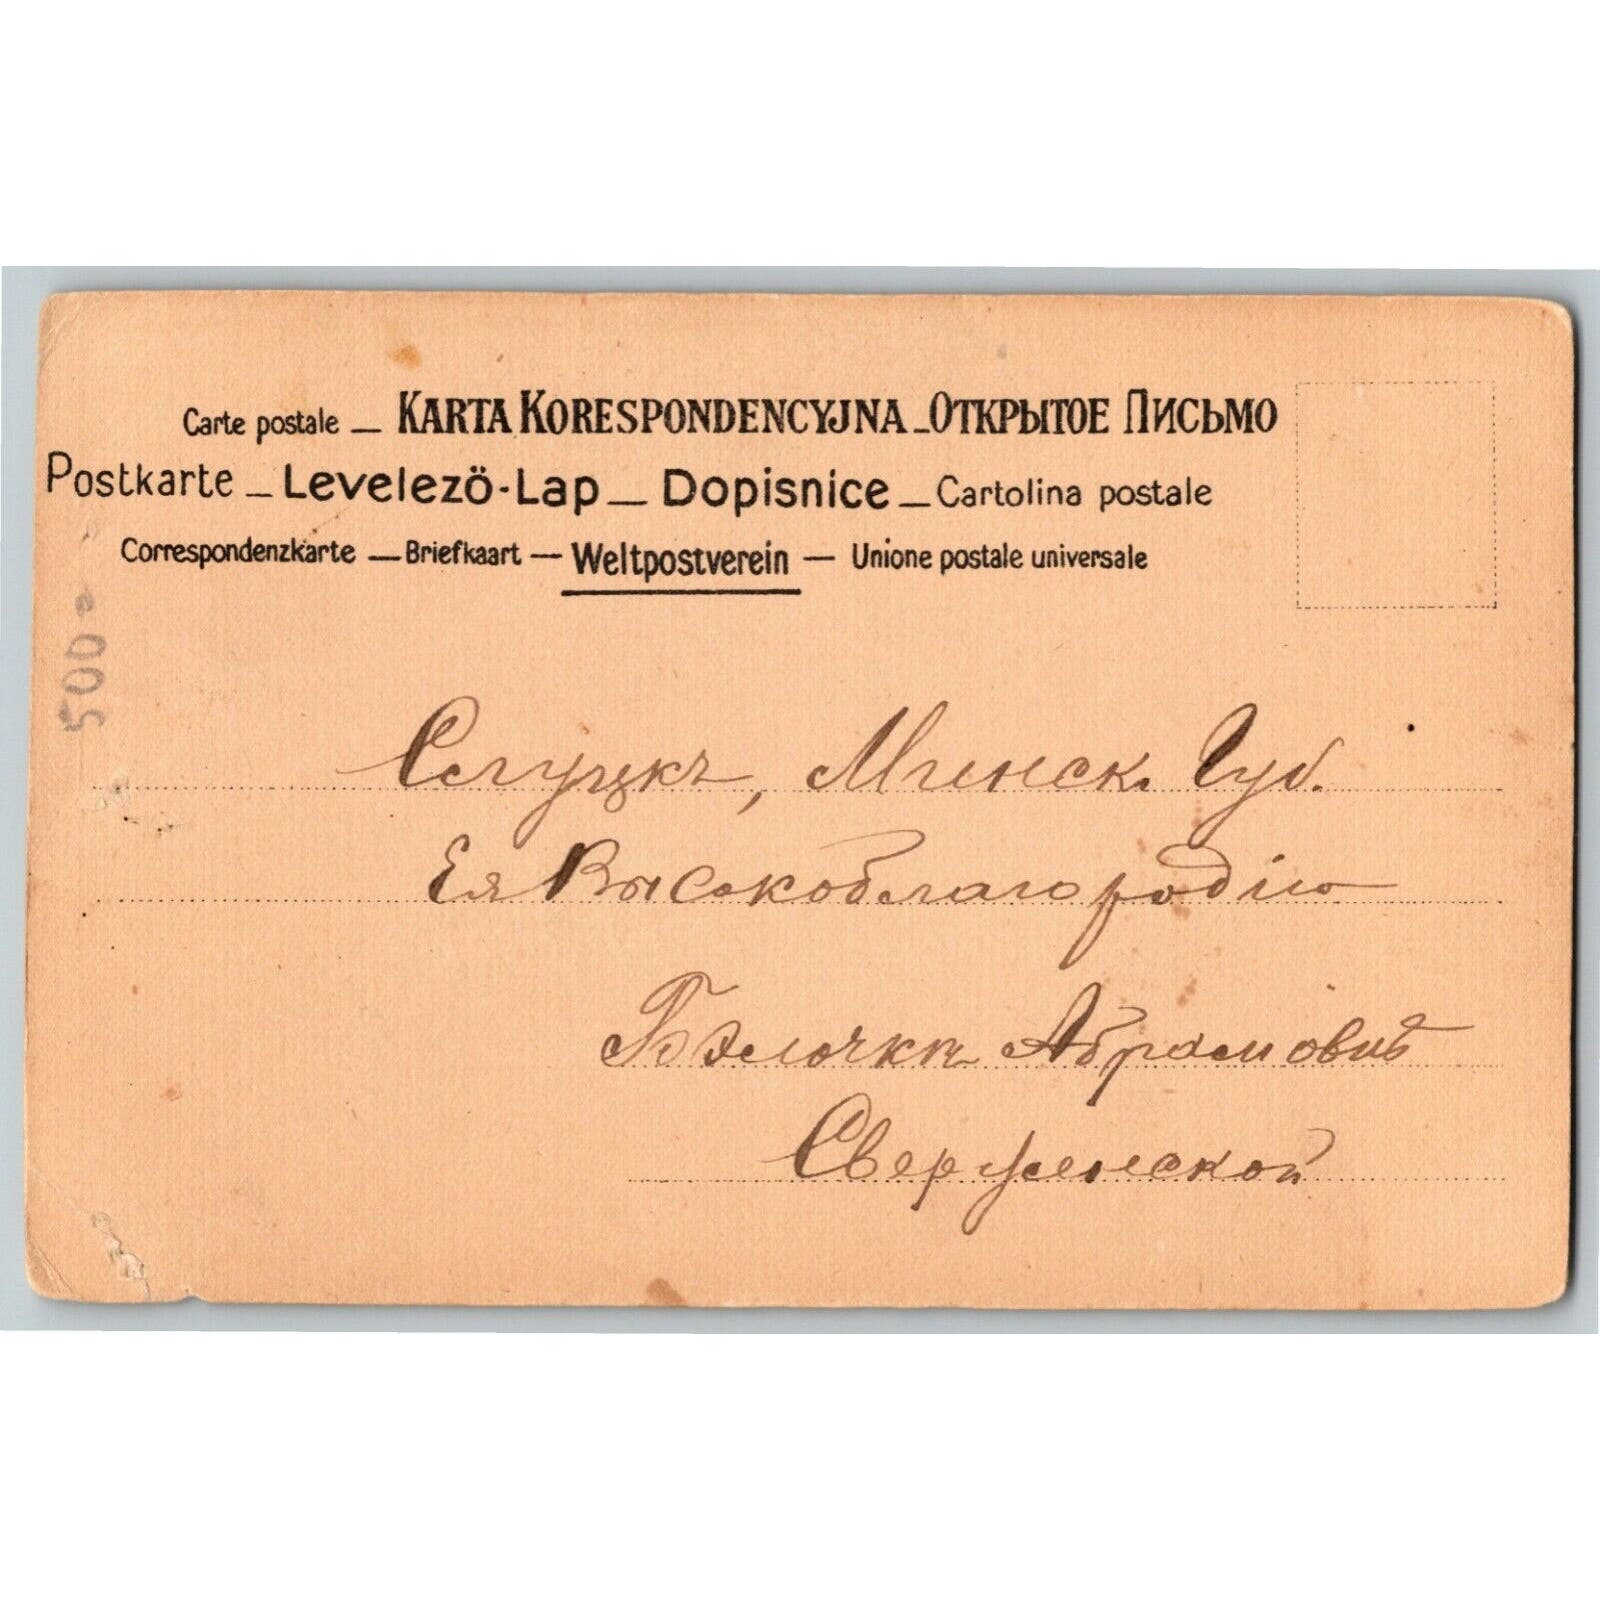 Carte postale — KARTA KORESPONDENCYJNA – ОТКРЫТОЕ ПИСЬМО
Postkarte – Levelezö-Lap – Dopisnice – Cartolina postale
Correspondenzkarte — Briefkaart — Weltpostverein — Unione postale universale
500
Слуцкъ, Минск. Губ.
Ея Высокоблагородію
Абрамовнѣ
Сверженской